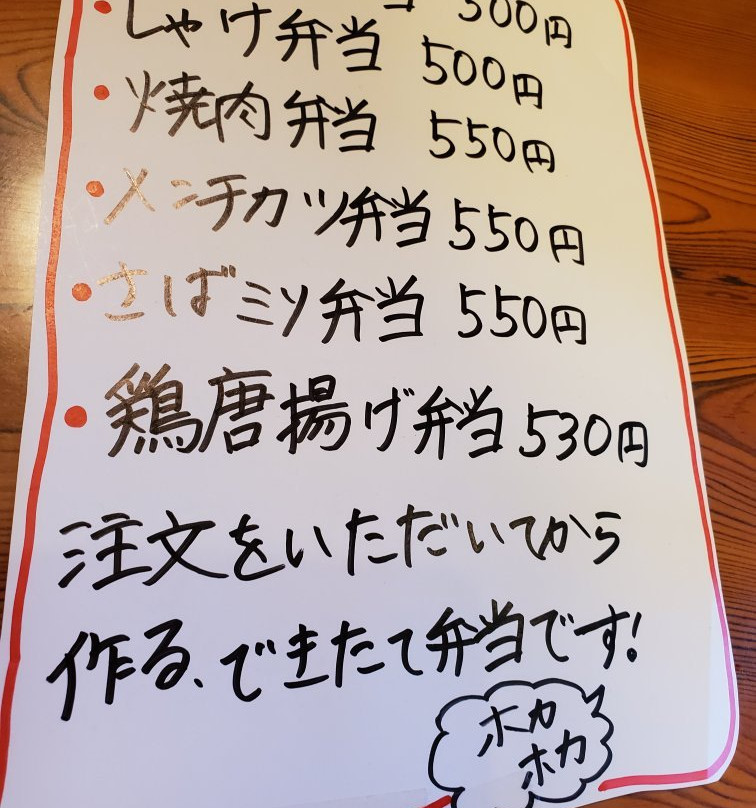 500円
しゃけ弁当 500円
焼肉弁当 550円
メンチカツ弁当 550円
さばミソ弁当 550円
鶏唐揚げ弁当 530円
注文をいただいてから
作る、できたて弁当です!
ホカ
ホカ